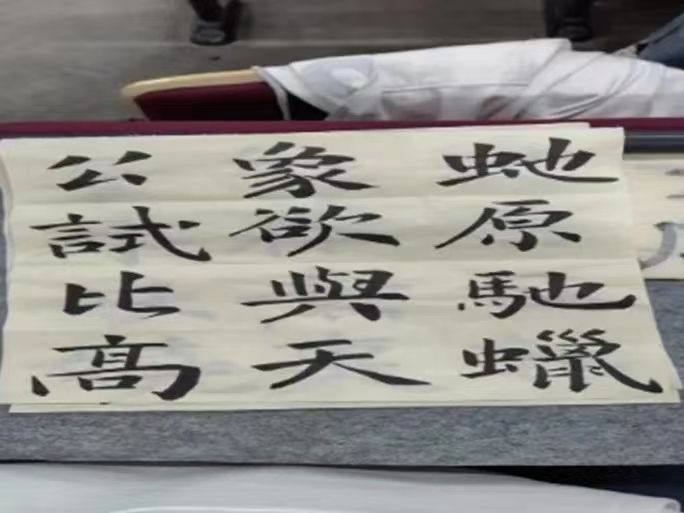 虵原馳蠟
象欲與天
公試比髙